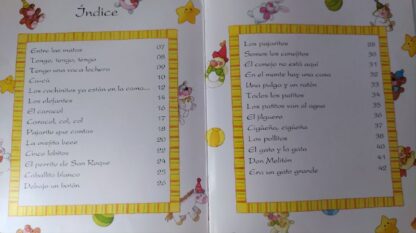 Índice
Entre las matas 07
Tengo, tengo, tengo 08
Tengo una vaca lechera 09
Cucú 10
Los cochinitos ya están en la cama... 12
Los elefantes 14
El caracol 16
Caracol, col, col 17
Pajarito que cantas 18
La ovejita beee 20
Cinco lobitos 22
El perrito de San Roque 24
Caballito blanco 25
Debajo un botón 26
Los pajaritos 28
Somos los conejitos 30
El conejo no está aquí 31
En el monte hay una casa 32
Una pulga y un ratón 33
Todos los patitos 34
Los patitos van al agua 35
El jilguero 36
Cigüeña, cigüeña 37
Los pollitos 38
El gato y la gata 40
Don Melitón 41
Era un gato grande 42